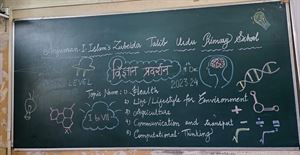 Anjuman-I-Islam's Zubeida Talib Urdu Primary School
विज्ञान प्रदर्शन
LEVEL
2023.24
I to VII
Topic Name:- 1) Health
2) Life (Lifestyle for Environment)
3) Agriculture
4) Communication and transport
5) Computational Thinking